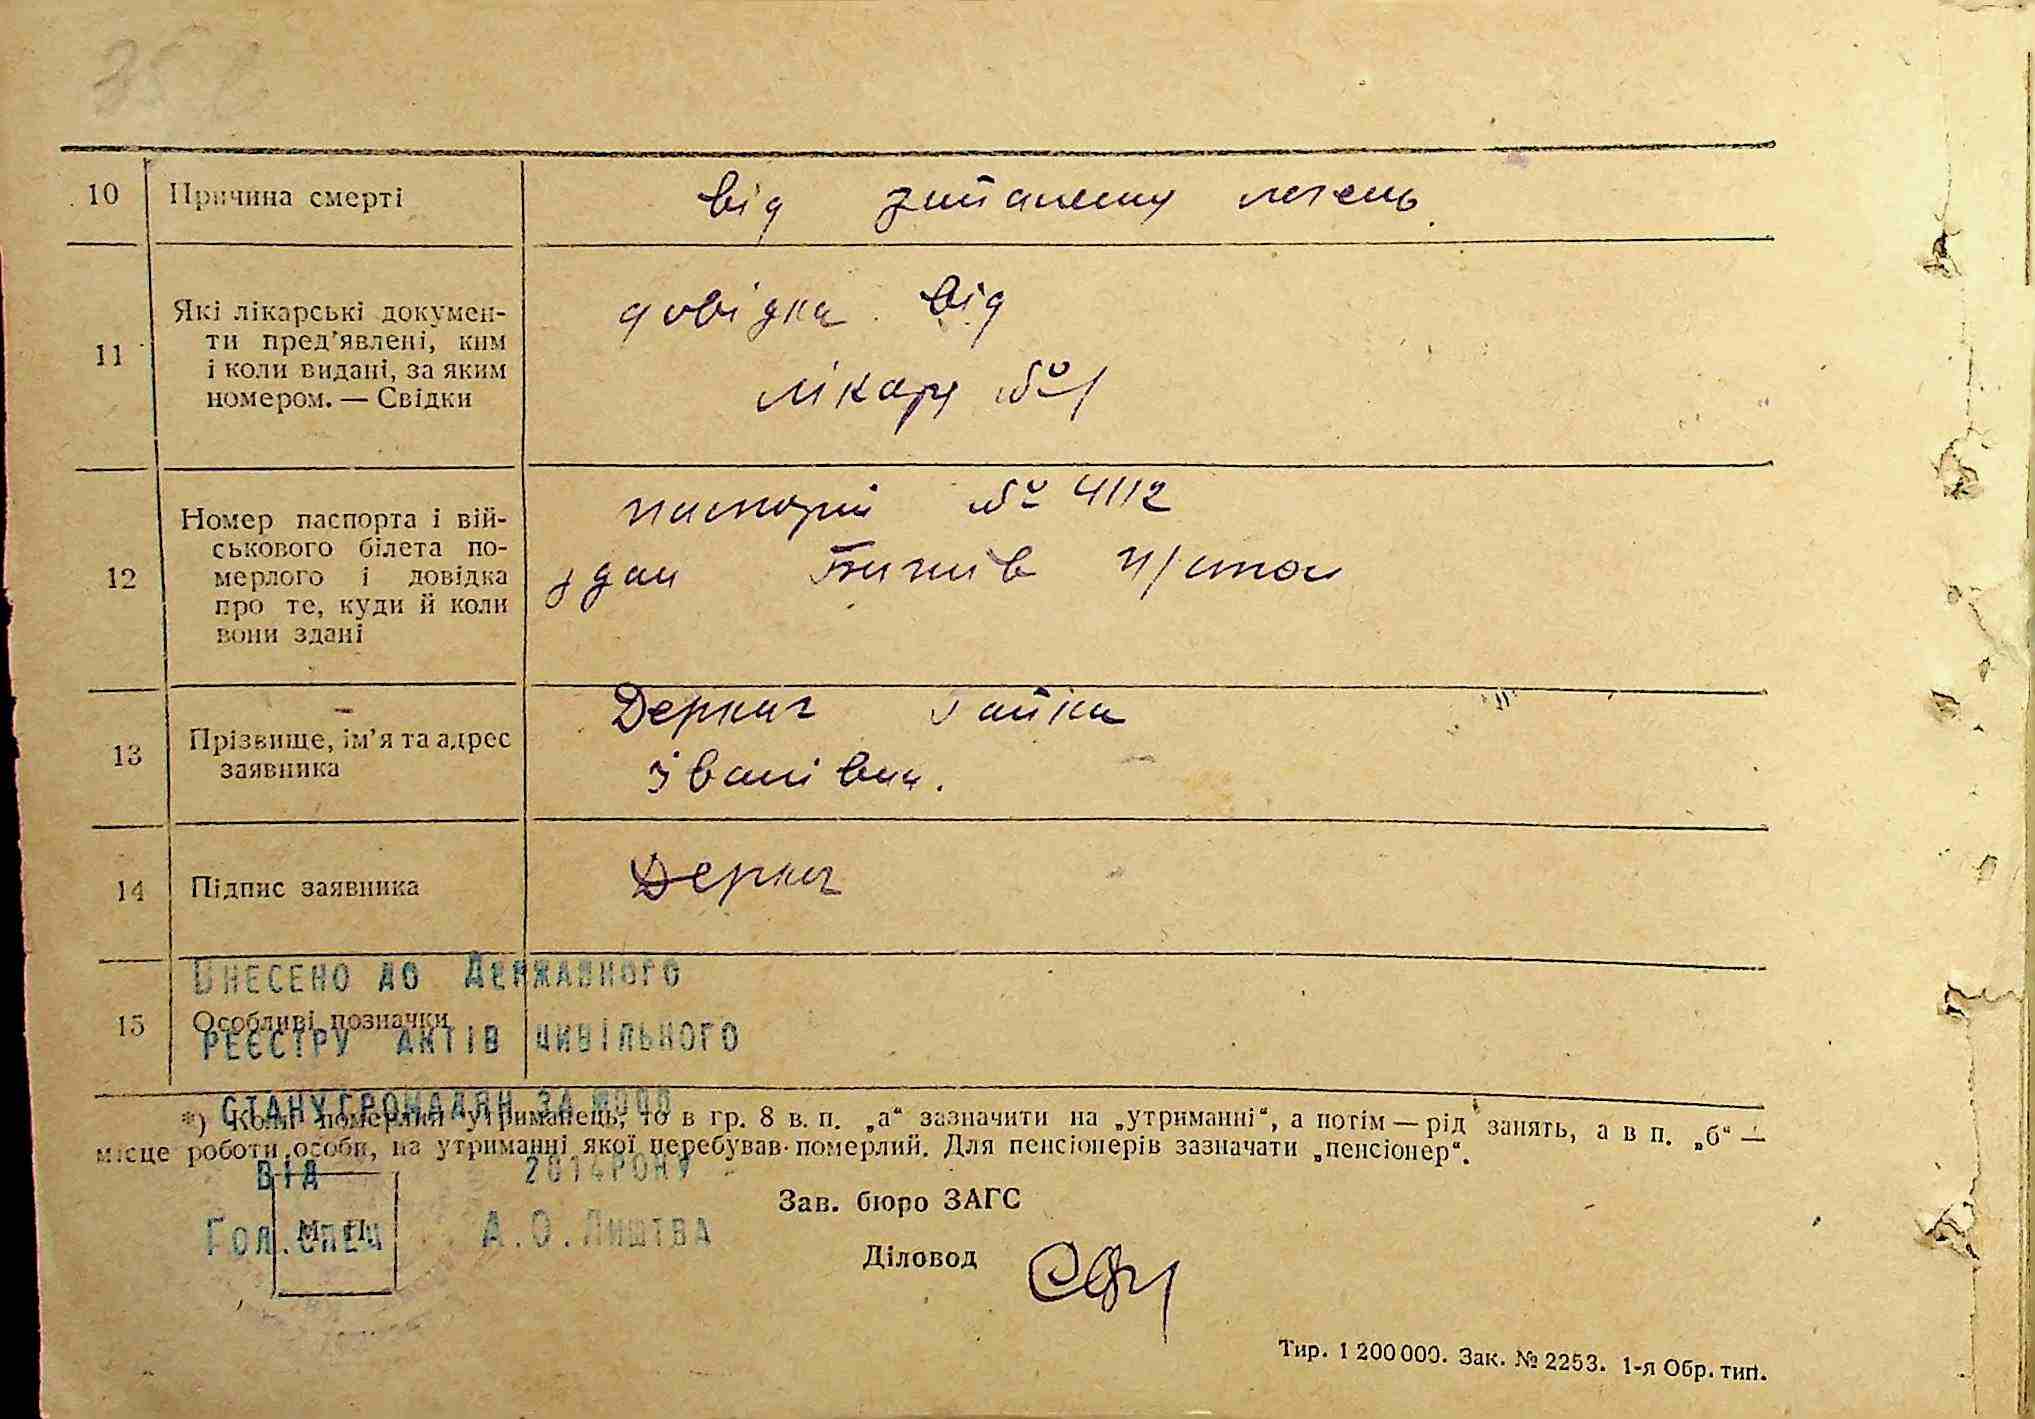 10 Причина смерті
від запалення легень
11 Які лікарські докумен-
ти пред'явлені, ким
і коли видані, за яким
номером. — Свідки
довідка від
лікаря №1
12 Номер паспорта і вій-
ськового білета по-
мерлого і довідка
про те, куди й коли
вони здані
паспорт № 4112
здан
13 Прізвище, ім'я та адрес
заявника
Деркач
Іванівна.
14 Підпис заявника
Деркач
15 Особливі позначки
Внесено до Державного
реєстру актів цивільного
стану громадян за
від 2014 року
Гол. спец А.О. Лиштва
*) Коли померлий утриманець, то в гр. 8 в. п. „а“ зазначити на „утриманні“, а потім — рід занять, а в п. „б“ —
місце роботи особи, на утриманні якої перебував померлий. Для пенсіонерів зазначати „пенсіонер“.
М. П.
Зав. бюро ЗАГС
Діловод
Тир. 1 200 000. Зак. № 2253. 1-я Обр. тип.